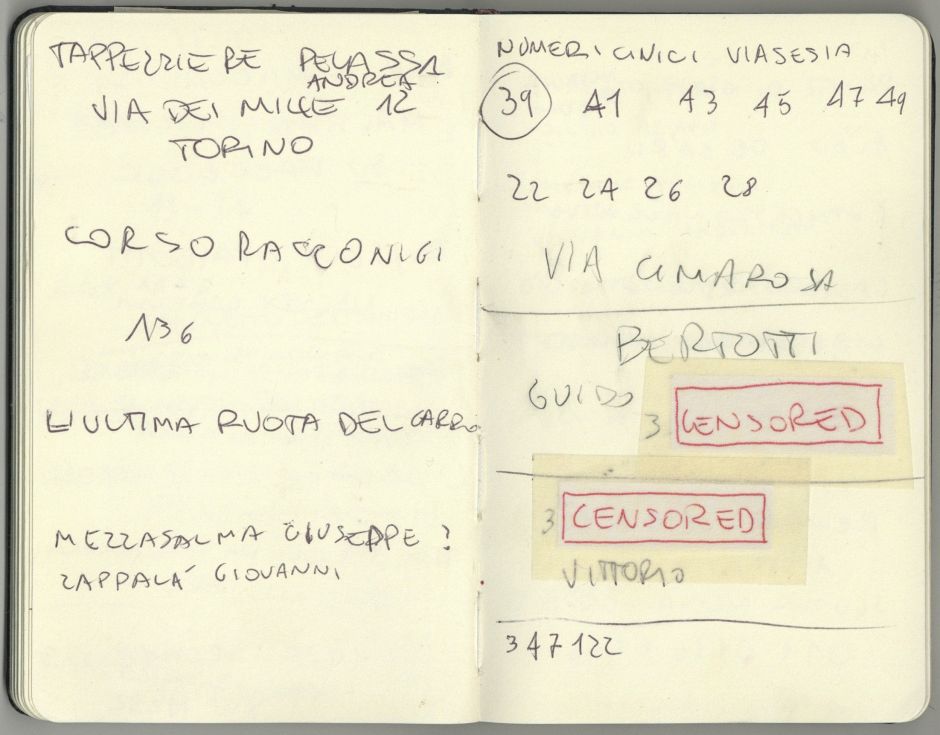 TAPPEZZIERE PELASSA
ANDREA
VIA DEI MILLE 12
TORINO
CORSO RACCONIGI
136
L'ULTIMA RUOTA DEL CARRO
MEZZASALMA GIUSEPPE ?
ZAPPALA' GIOVANNI
NUMERI CIVICI VIA SESIA
39 41 43 45 47 49
22 24 26 28
VIA CIMAROSA
BERTOTTI
GUIDO
3 CENSORED
3 CENSORED
VITTORIO
347122